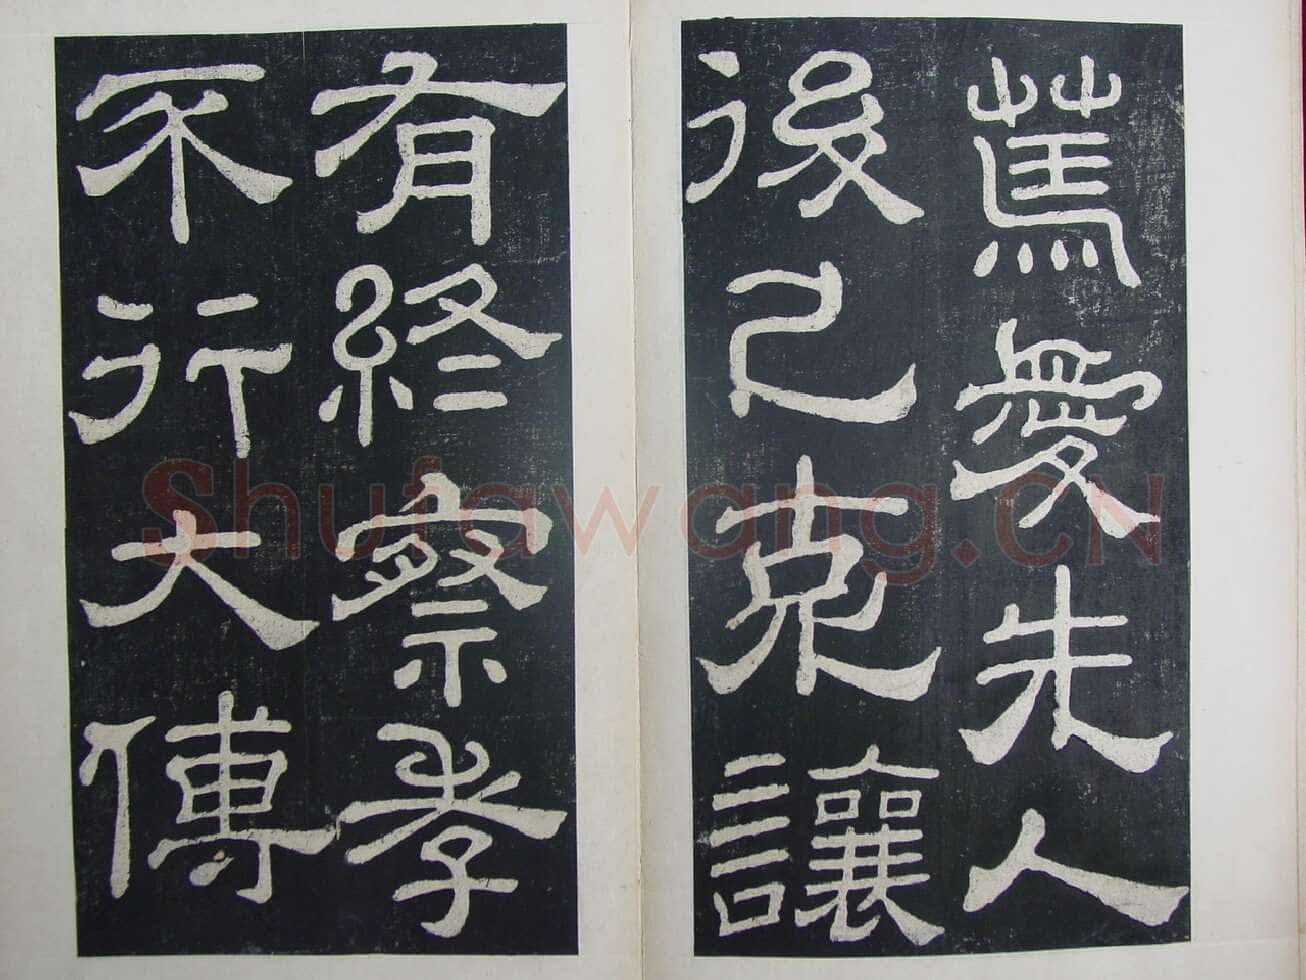 篤愛先人
後己克讓
有終察孝
不行大傅
Shufawang.CN